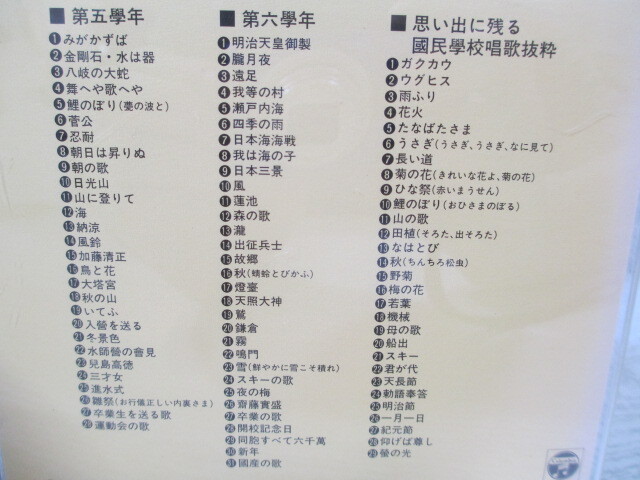 ■ 第五學年
❶みがかずば
❷金剛石・水は器
❸八岐の大蛇
❹舞へや歌へや
❺鯉のぼり(甍の波と)
❻菅公
❼忍耐
❽朝日は昇りぬ
❾朝の歌
❿日光山
⓫山に登りて
⓬海
⓭納涼
⓮風鈴
⓯加藤清正
⓰鳥と花
⓱大塔宮
⓲秋の山
⓳いてふ
⓴入營を送る
㉑冬景色
㉒水師營の會見
㉓兒島高徳
㉔三才女
㉕進水式
㉖雛祭(お行儀正しい内裏さま)
㉗卒業生を送る歌
㉘運動会の歌
■ 第六學年
❶明治天皇御製
❷朧月夜
❸遠足
❹我等の村
❺瀬戸内海
❻四季の雨
❼日本海海戦
❽我は海の子
❾日本三景
❿風
⓫蓮池
⓬森の歌
⓭瀧
⓮出征兵士
⓯故郷
⓰秋(蜻蛉とびかふ)
⓱燈臺
⓲天照大神
⓳鷲
⓴鎌倉
㉑霧
㉒鳴門
㉓雪(鮮やかに雪こそ積れ)
㉔スキーの歌
㉕夜の梅
㉖齋藤實盛
㉗卒業の歌
㉘開校記念日
㉙同胞すべて六千萬
㉚新年
㉛國産の歌
■ 思い出に残る
國民學校唱歌抜粋
❶ガクカウ
❷ウグヒス
❸雨ふり
❹花火
❺たなばたさま
❻うさぎ(うさぎ、うさぎ、なに見て)
❼長い道
❽菊の花(きれいな花よ、菊の花)
❾ひな祭(赤いまうせん)
❿鯉のぼり(おひさまのぼる)
⓫山の歌
⓬田植(そろた、出そろた)
⓭なはとび
⓮秋(ちんちろ松虫)
⓯野菊
⓰梅の花
⓱若葉
⓲機械
⓳母の歌
⓴船出
㉑スキー
㉒君が代
㉓天長節
㉔勅語奉答
㉕明治節
㉖一月一日
㉗紀元節
㉘仰げば尊し
㉙螢の光